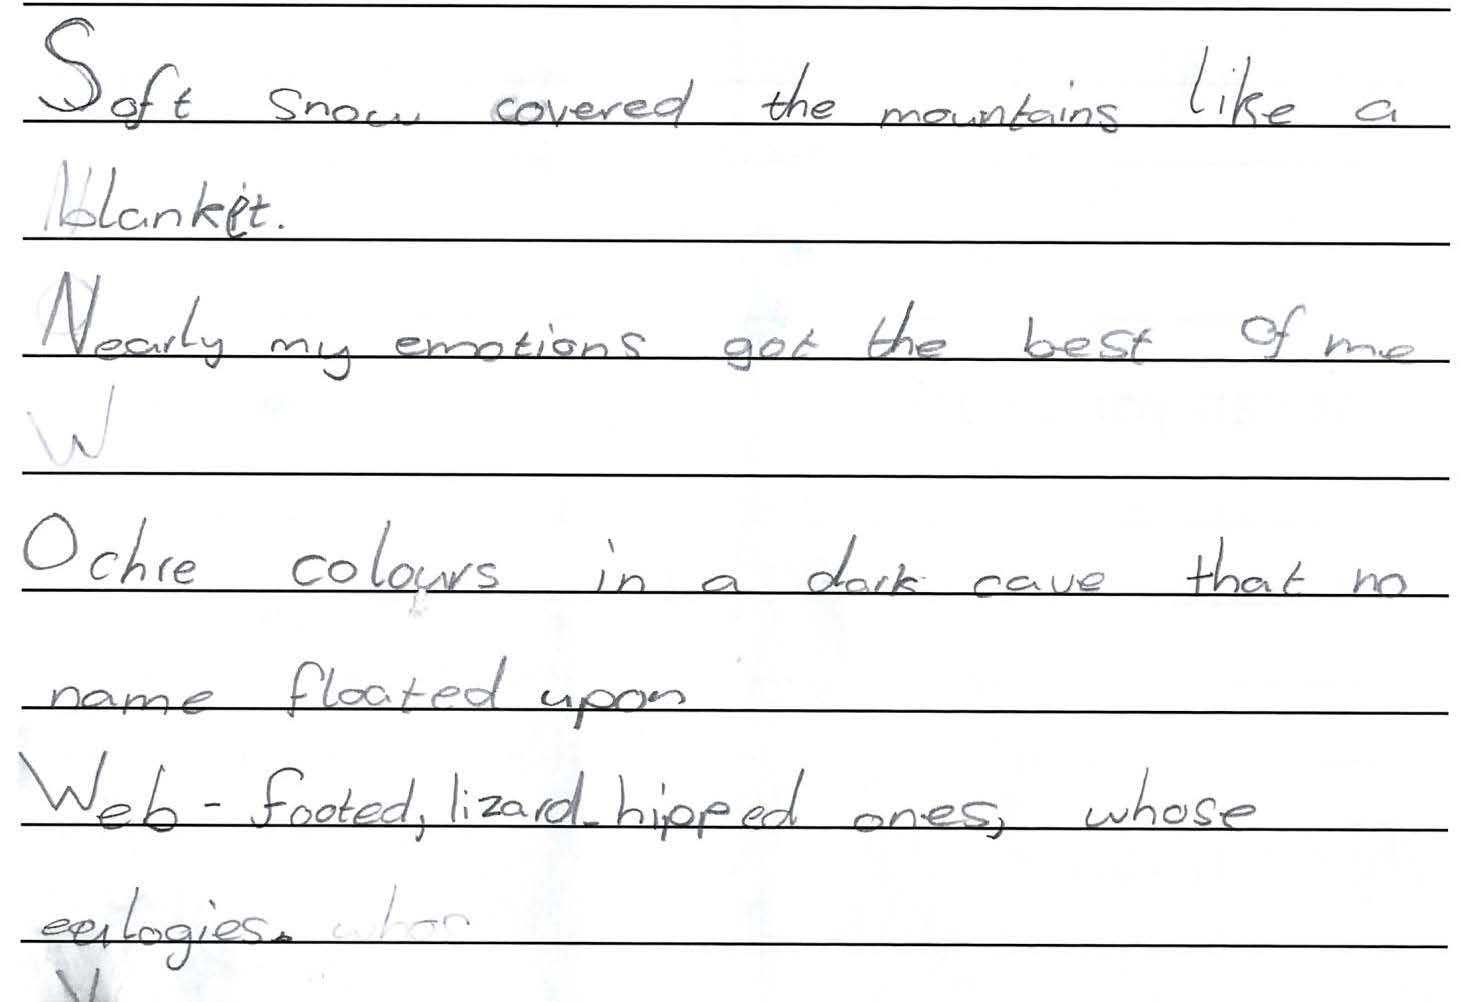 Soft snow covered the mountains like a
blanket.
Nearly my emotions got the best of me
W
Ochre colours in a dark cave that no
name floated upon
Web-footed, lizard-hipped ones, whose
eeulogies.